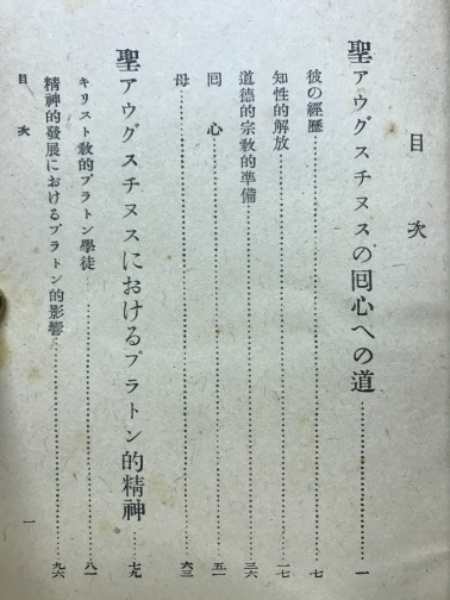 目次
聖アウグスチヌスの囘心への道……一
彼の經歷……七
知性的解放……一七
道德的宗敎的準備……三六
囘心……五一
母……六三
聖アウグスチヌスにおけるプラトン的精神……七九
キリスト敎的プラトン學徒……八一
精神的發展におけるプラトン的影響……九六
目次 一